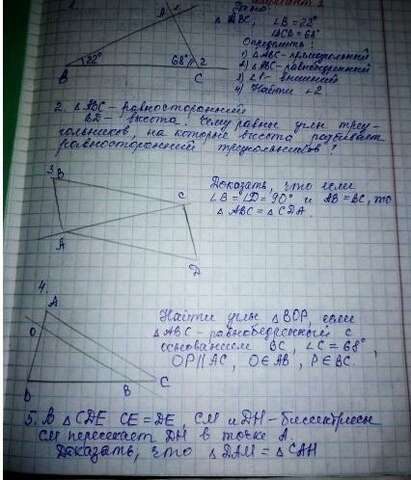 Вариант 1
1.
Дано:
△ABC, ∠B = 22°
∠ACB = 68°
Определить:
1) △ABC - прямоугольный
2) △ABC - равнобедренный
3) ∠1 - внешний
4) Найти ∠2
A 1
B 22° 68° 2
C
2. △ABC - равносторонний
BD - высота. Чему равны углы треу-
гольников, на которые высота разбивает
равносторонний треугольников?
3.
B
C
A
D
Доказать, что если
∠B = ∠D = 90° и AB = BC, то
△ABC = △CDA.
4.
A
O
B
C
Найти углы △BOP, если
△ABC - равнобедренный с
основанием BC, ∠C = 68°,
OP || AC, O∈AB, P∈BC.
5. В △CDE CE = DE, CM и DH - биссектрисы
CM пересекает DH в точке A.
Доказать, что △DAM = △CAH